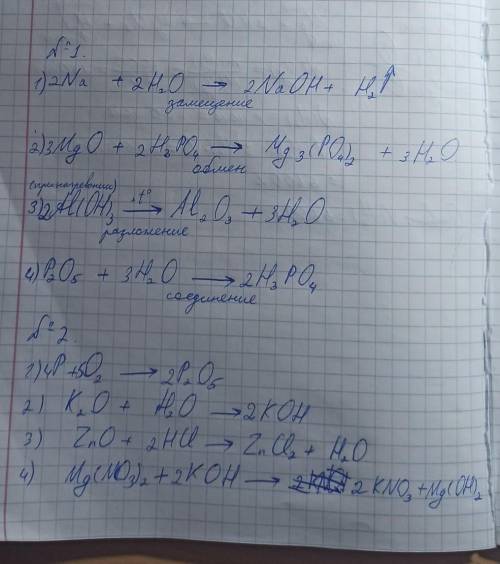 №1.
1) 2Na + 2H₂O → 2NaOH + H₂↑
замещение
2) 3MgO + 2H₃PO₄ → Mg₃(PO₄)₂ + 3H₂O
обмен
(при нагревании)
3) 2Al(OH)₃ →t° Al₂O₃ + 3H₂O
разложение
4) P₂O₅ + 3H₂O → 2H₃PO₄
соединение
№2.
1) 4P + 5O₂ → 2P₂O₅
2) K₂O + H₂O → 2KOH
3) ZnO + 2HCl → ZnCl₂ + H₂O
4) Mg(NO₃)₂ + 2KOH → 2KNO₃ + Mg(OH)₂